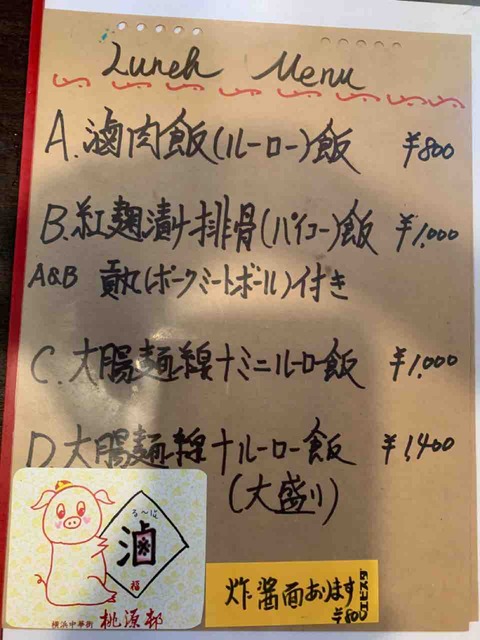 Lunch Menu
A.滷肉飯(ルーロー)飯 ¥800
B.紅麹漬け排骨(パイコー)飯 ¥1,000
A&B 貢丸(ポークミートボール)付き
C.大腸麺線+ミニルーロー飯 ¥1,000
D 大腸麺線+ルーロー飯 ¥1,400
(大盛り)
る〜ぱ
滷
福
横浜中華街 桃源邨
炸醤面あります
¥800